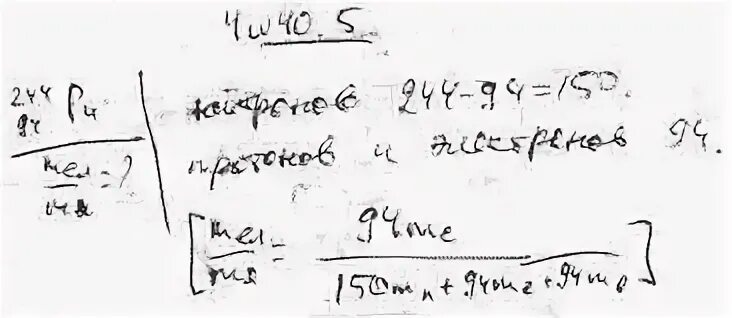 40.5.
²⁴⁴₉₄Pu
mэл/mя = ?
нейтронов 244-94=150.
протонов и электронов 94.
[mэл/mя = 94mₑ/(150mₙ+94mₑ+94mₚ)]